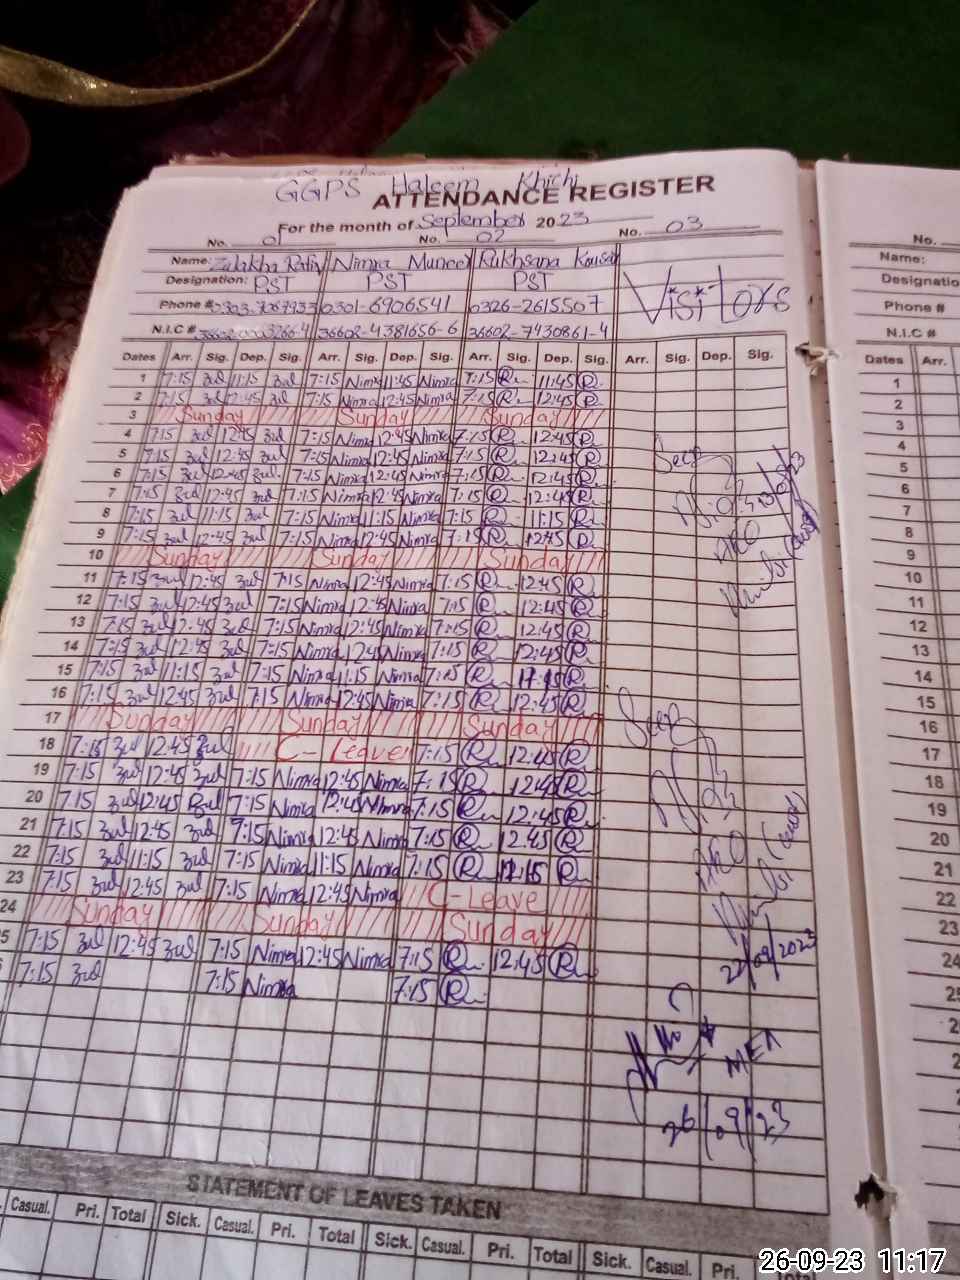 GGPS Haleem Khichi
ATTENDANCE REGISTER
For the month of September 2023
No. 01 No. 02 No. 03
Name: Zulakha Nimra Muneer Rukhsana Kousar
Designation: PST PST PST Visitors
Phone # 0301-6906541 0326-2615507
N.I.C # 36602-4381656-6 36602-7430861-4
Dates Arr. Sig. Dep. Sig. Arr. Sig. Dep. Sig. Arr. Sig. Dep. Sig. Arr. Sig. Dep. Sig.
1 7:15 Zul 11:15 Zul 7:15 Nimra 11:45 Nimra 7:15 R 11:45 R
2 7:15 Zul 12:45 Zul 7:15 Nimra 12:45 Nimra 7:15 R 12:45 R
3 Sunday Sunday Sunday
4 7:15 Zul 12:45 Zul 7:15 Nimra 12:45 Nimra 7:15 R 12:45 R
5 7:15 Zul 12:45 Zul 7:15 Nimra 12:45 Nimra 7:15 R 12:45 R
6 7:15 Zul 12:45 Zul 7:15 Nimra 12:45 Nimra 7:15 R 12:45 R
7 7:15 Zul 12:45 Zul 7:15 Nimra 12:45 Nimra 7:15 R 12:45 R
8 7:15 Zul 11:15 Zul 7:15 Nimra 11:15 Nimra 7:15 R 11:15 R
9 7:15 Zul 12:45 Zul 7:15 Nimra 12:45 Nimra 7:15 R 12:45 R
10 Sunday Sunday Sunday
11 7:15 Zul 12:45 Zul 7:15 Nimra 12:45 Nimra 7:15 R 12:45 R
12 7:15 Zul 12:45 Zul 7:15 Nimra 12:45 Nimra 7:15 R 12:45 R
13 7:15 Zul 12:45 Zul 7:15 Nimra 12:45 Nimra 7:15 R 12:45 R
14 7:15 Zul 12:45 Zul 7:15 Nimra 12:45 Nimra 7:15 R 12:45 R
15 7:15 Zul 11:15 Zul 7:15 Nimra 11:15 Nimra 7:15 R 11:15 R
16 7:15 Zul 12:45 Zul 7:15 Nimra 12:45 Nimra 7:15 R 12:45 R
17 Sunday Sunday Sunday
18 7:15 Zul 12:45 Zul C-Leave 7:15 R 12:45 R
19 7:15 Zul 12:45 Zul 7:15 Nimra 12:45 Nimra 7:15 R 12:45 R
20 7:15 Zul 12:45 Zul 7:15 Nimra 12:45 Nimra 7:15 R 12:45 R
21 7:15 Zul 12:45 Zul 7:15 Nimra 12:45 Nimra 7:15 R 12:45 R
22 7:15 Zul 11:15 Zul 7:15 Nimra 11:15 Nimra 7:15 R 11:15 R
23 7:15 Zul 12:45 Zul 7:15 Nimra 12:45 Nimra C-Leave
24 Sunday Sunday Sunday
5 7:15 Zul 12:45 Zul 7:15 Nimra 12:45 Nimra 7:15 R 12:45 R
7:15 Zul 7:15 Nimra 7:15 R
Seen
AEO
Seen
AEO
22/09/2023
MEA
26/09/23
STATEMENT OF LEAVES TAKEN
Casual. Pri. Total Sick. Casual. Pri. Total Sick. Casual. Pri. Total Sick. Casual. Pri.
No.
Name:
Designatio
Phone #
N.I.C #
Dates Arr.
1
2
3
4
5
6
7
8
9
10
11
12
13
14
15
16
17
18
19
20
21
22
23
24
25
26-09-23 11:17